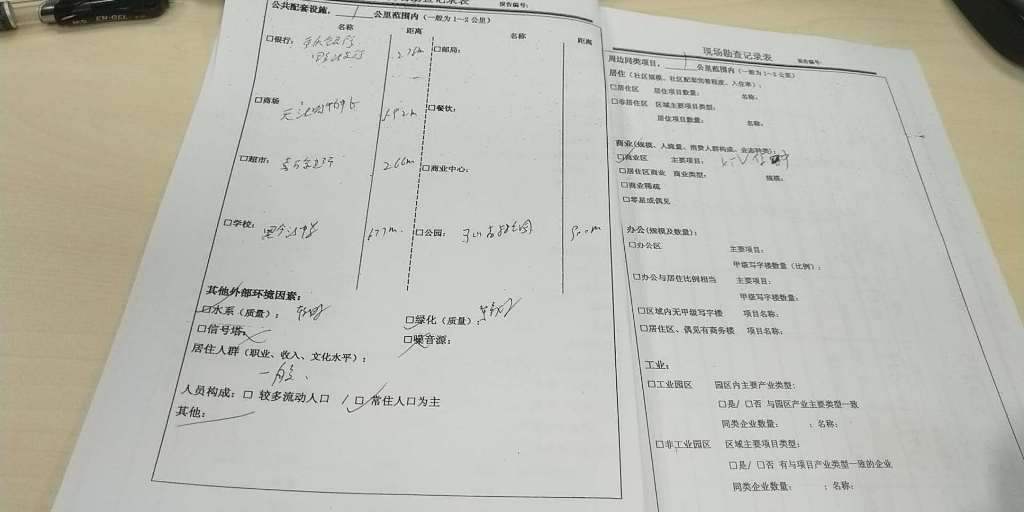 勘查记录表
报告编号:
公共配套设施, 1 公里范围内(一般为1~2公里)
名称 距离 名称 距离
□银行: □邮局:
□商场 □餐饮:
□超市: 266m □商业中心:
□学校: 677m □公园:
其他外部环境因素:
☑水系(质量): □绿化(质量):
□信号塔: □噪音源:
居住人群(职业、收入、文化水平):
一般.
人员构成: □ 较多流动人口 / □ 常住人口为主
其他:
现场勘查记录表
报告编号:
周边同类项目, 1 公里范围内(一般为1~5公里)
居住(社区规模、社区配套完善程度、入住率):
□居住区 居住项目数量: 名称:
□非居住区 区域主要项目类型:
居住项目数量: 名称:
商业(规模、人流量、消费人群构成、业态种类):
□商业区 主要项目:
□居住区商业 商业类型: 规模:
□商业稀疏
□零星或偶见
办公(规模及数量):
□办公区 主要项目:
甲级写字楼数量(比例):
□办公与居住比例相当 主要项目:
甲级写字楼数量:
□区域内无甲级写字楼 项目名称:
□居住区、偶见有商务楼 项目名称:
工业:
□工业园区 园区内主要产业类型:
□是/ □否 与园区产业主要类型一致
同类企业数量: ; 名称:
□非工业园区 区域主要项目类型:
□是/ □否 有与项目产业类型一致的企业
同类企业数量: ; 名称: